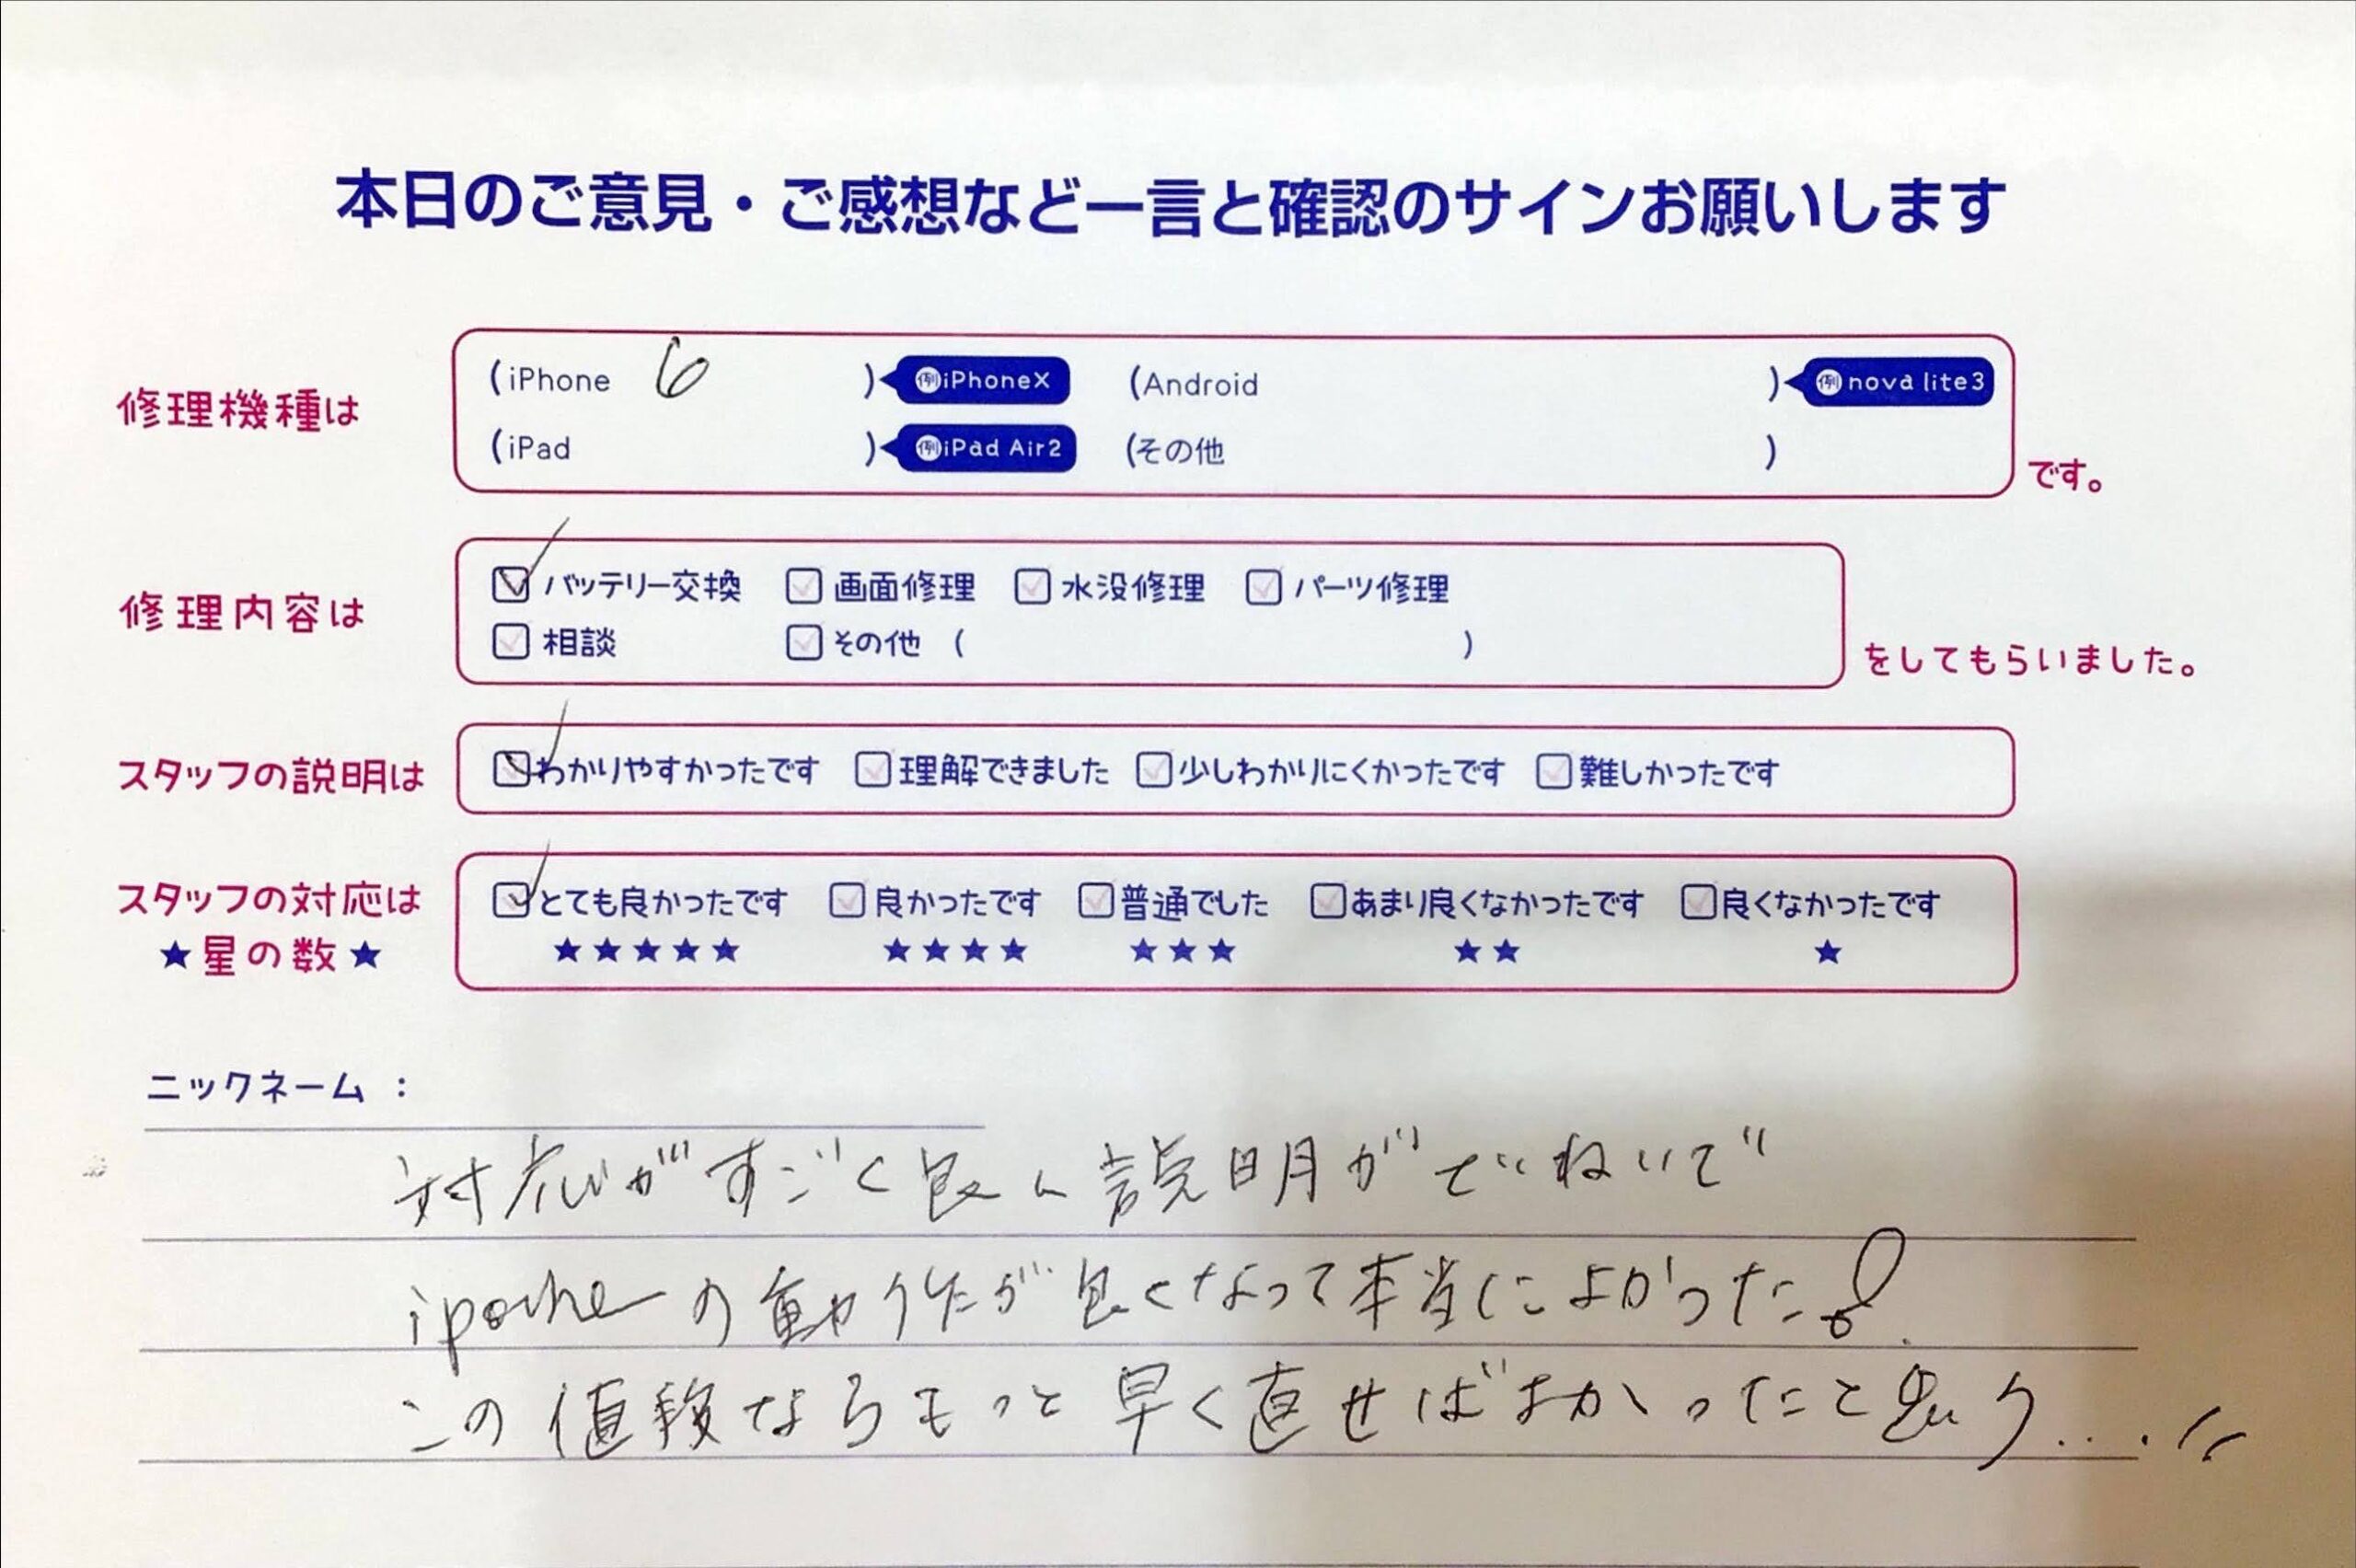 本日のご意見・ご感想など一言と確認のサインお願いします
修理機種は
(iPhone 6 ) 例iPhoneX (Android ) 例nova lite3
(iPad ) 例iPad Air2 (その他 )
です。
修理内容は
バッテリー交換 画面修理 水没修理 パーツ修理
相談 その他 ( )
をしてもらいました。
スタッフの説明は
わかりやすかったです 理解できました 少しわかりにくかったです 難しかったです
スタッフの対応は
★星の数★
とても良かったです 良かったです 普通でした あまり良くなかったです 良くなかったです
★★★★★ ★★★★ ★★★ ★★ ★
ニックネーム：
対応がすごく良く説明がていねいで
ipohneの動作が良くなって本当によかった!
この値段ならもっと早く直せばよかったと思う....